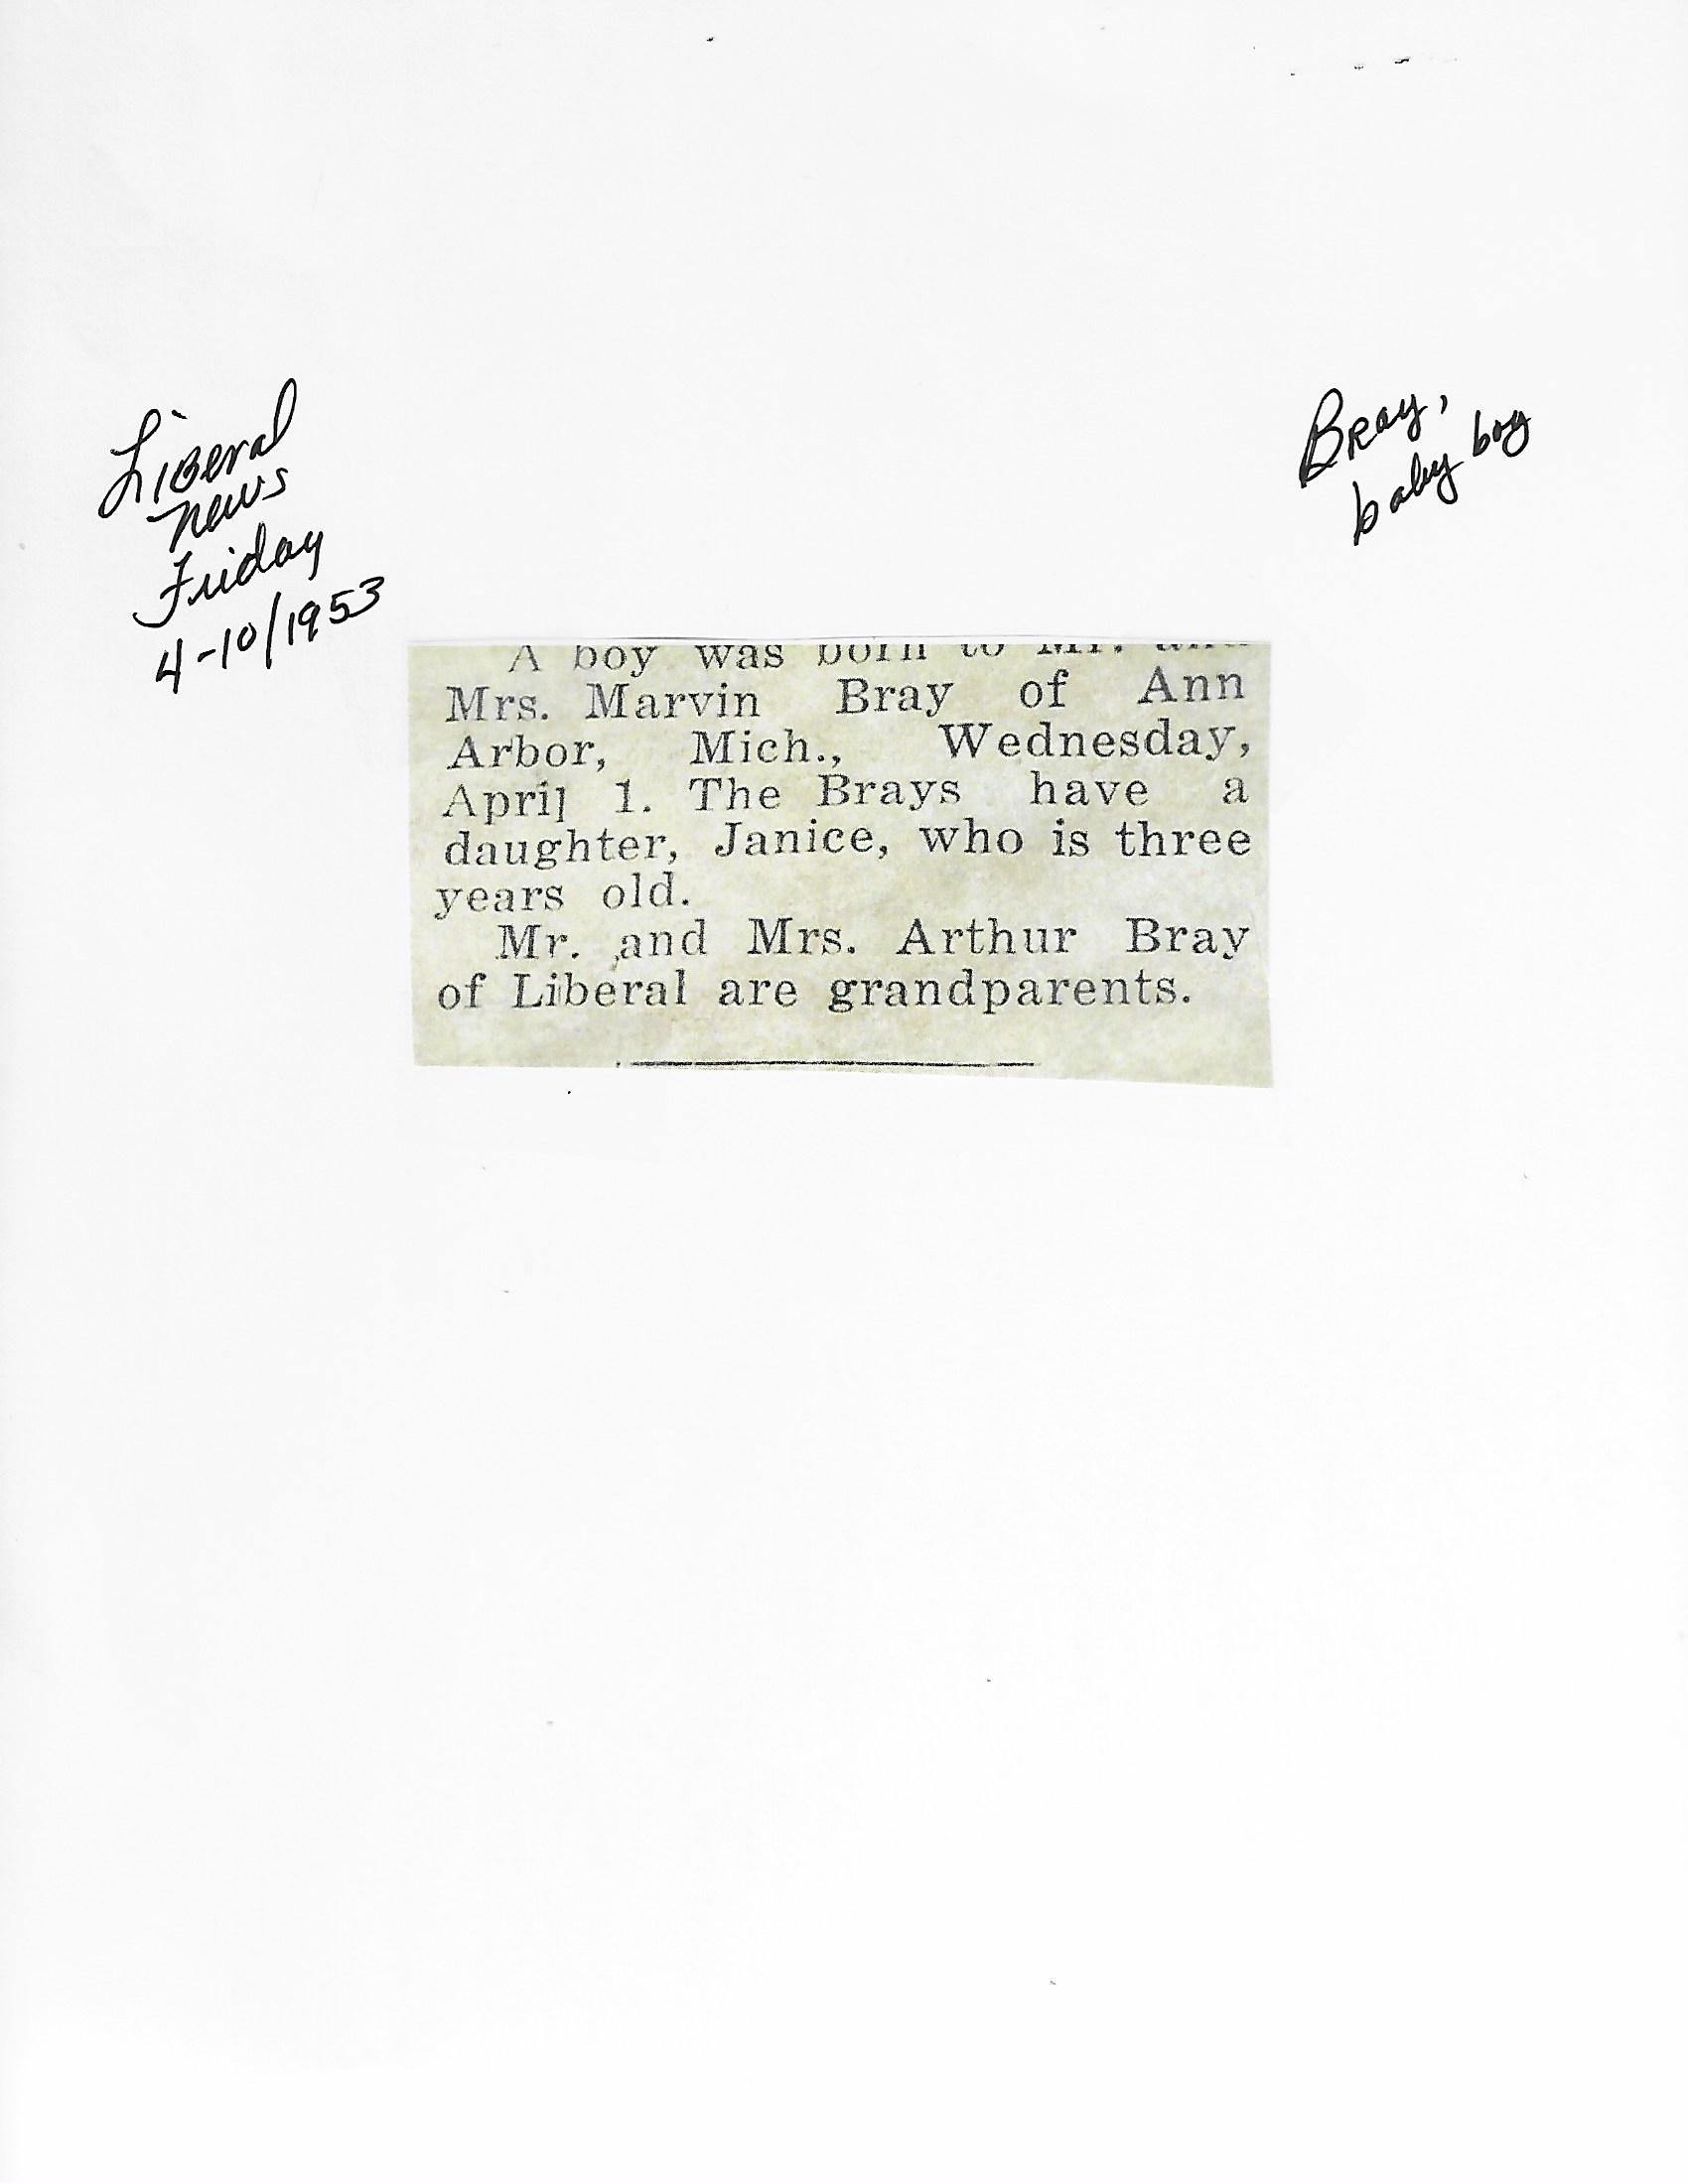 Liberal
News
Friday
4-10/1953
Bray,
baby boy
A boy was born to Mr. and
Mrs. Marvin Bray of Ann
Arbor, Mich., Wednesday,
April 1. The Brays have a
daughter, Janice, who is three
years old.
Mr. and Mrs. Arthur Bray
of Liberal are grandparents.